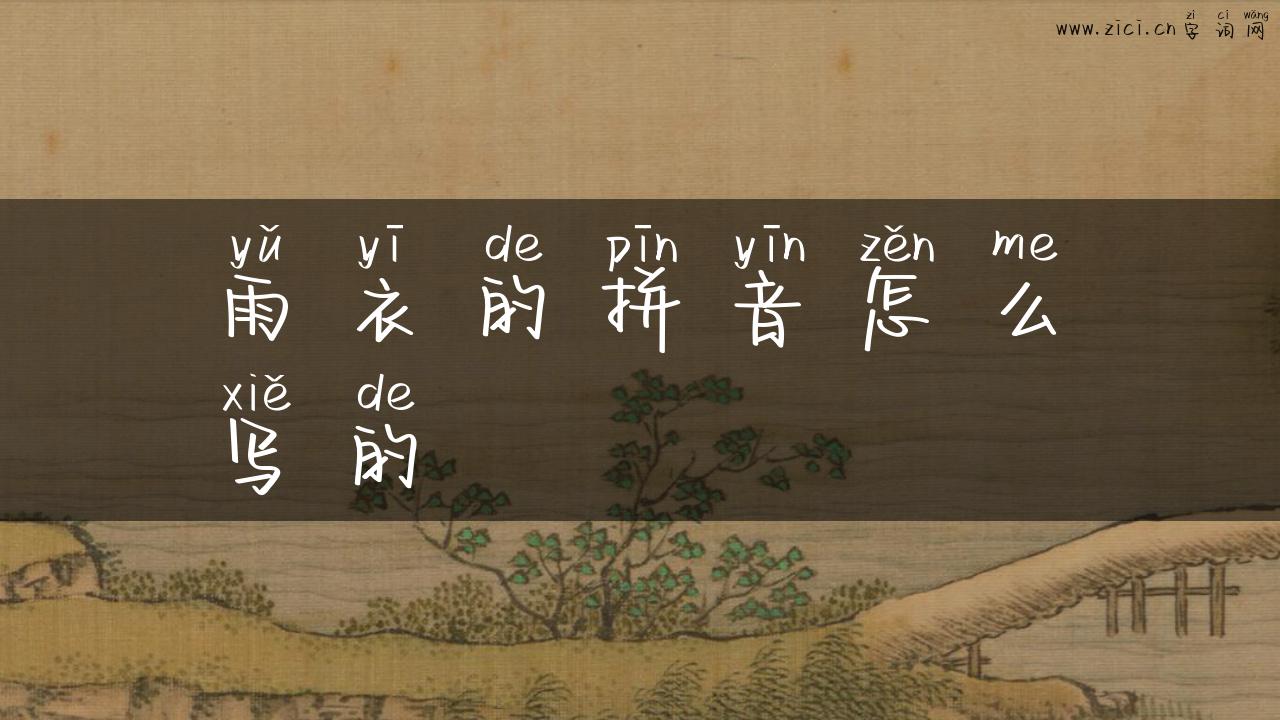 zì cí wǎng
www.zici.cn 字词网
yǔ yī de pīn yīn zěn me
雨衣的拼音怎么
xiě de
写的